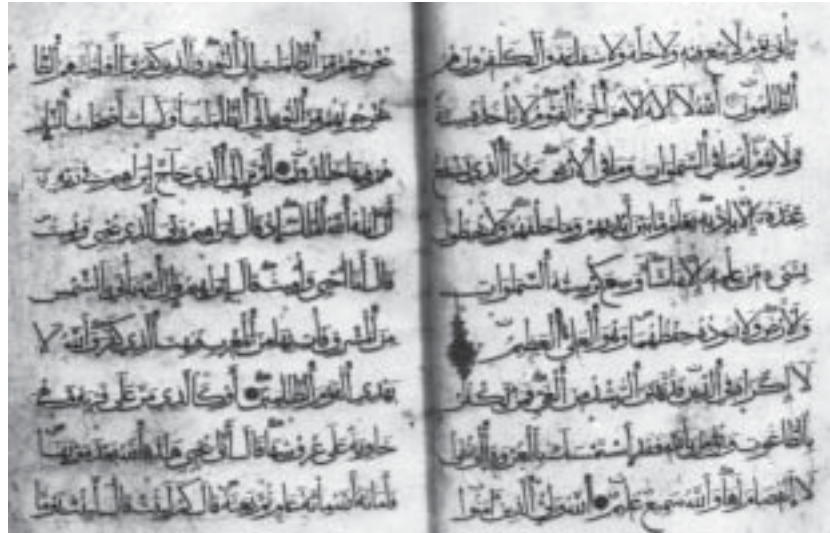 يأتي يوم لا بيع فيه ولا خلة ولا شفاعة والكافرون هم
الظالمون الله لا إله إلا هو الحي القيوم لا تأخذه سنة
ولا نوم له ما في السموات وما في الأرض من ذا الذي يشفع
عنده إلا بإذنه يعلم ما بين أيديهم وما خلفهم ولا يحيطون
بشيء من علمه إلا بما شاء وسع كرسيه السموات
والأرض ولا يؤده حفظهما وهو العلي العظيم
لا إكراه في الدين قد تبين الرشد من الغي فمن يكفر
بالطاغوت ويؤمن بالله فقد استمسك بالعروة الوثقى
لا انفصام لها والله سميع عليم الله ولي الذين آمنوا
يخرجهم من الظلمات إلى النور والذين كفروا أولياؤهم الطا
يخرجونهم من النور إلى الظلمات أولئك أصحاب النار
هم فيها خالدون ألم تر إلى الذي حاج إبراهيم في ربه
أن آتاه الله الملك إذ قال إبراهيم ربي الذي يحيي ويميت
قال أنا أحيي وأميت قال إبراهيم فإن الله يأتي بالشمس
من المشرق فأت بها من المغرب فبهت الذي كفر والله لا
يهدي القوم الظالمين أو كالذي مر على قرية وهي
خاوية على عروشها قال أنى يحيي هذه الله بعد موتها
فأماته الله مائة عام ثم بعثه قال كم لبثت قال لبثت يوما